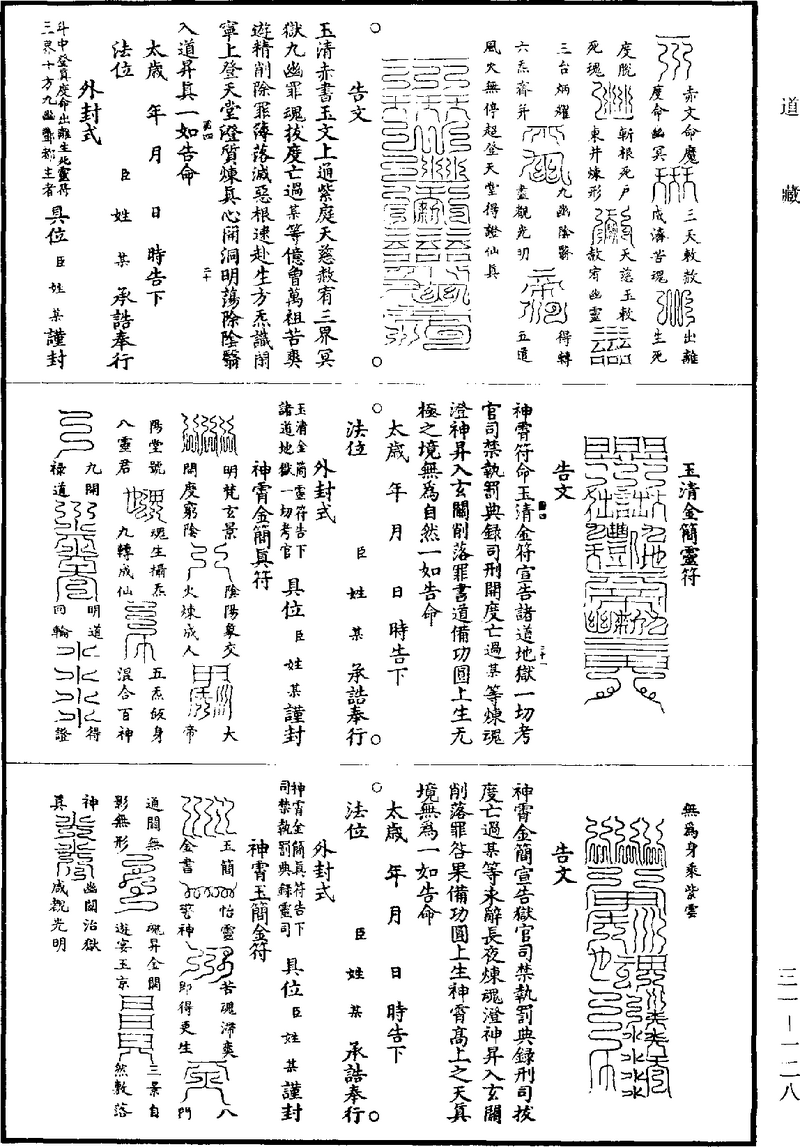 道藏
赤文命魔 三天敕赦 出離
度命幽冥 成濤苦魂 生死
度脫 斬根死戶 天慈玉敕
死魂 東井煉形 赦宥幽靈
三台炳耀 九幽陰翳 得轉
六炁齊并 盡觀光明 五道
風火無停超登天堂得證仙真
告文
玉清赤書玉文上通紫庭天慈赦宥三界冥
獄九幽罪魂拔度亡過某等億曾萬祖苦爽
遊精削除罪簿落滅惡根速赴生方炁識開
寧上登天堂澄質煉真心開洞明蕩除陰翳
入道昇真一如告命
第四
二十
太歲 年 月 日 時告下
法位 臣 姓 某 承誥奉行
外封式
斗中登真度命出離生死靈符
三界十方九幽酆都主者
具位 臣 姓 某 謹封
玉清金簡靈符
告文
神霄符命玉清金符宣告諸道地獄一切考
官司禁執罰典錄司刑開度亡過某等煉魂
澄神昇入玄關削落罪書道備功圓上生无
極之境無為自然一如告命
第四
二十一
太歲 年 月 日 時告下
法位 臣 姓 某 承誥奉行
外封式
玉清金簡靈符告下
諸道地獄一切考官
具位 臣 姓 某 謹封
神霄金簡真符
明梵玄景 陰陽象交 大
開度窮陰 火煉成人 帝
陽堂號 魂生攝炁 五炁皈身
八靈君 九轉成仙 混合百神
九開 明道 得
祿道 回輪 證
無為身乘紫雲
告文
神霄金簡宣告獄官司禁執罰典錄刑司拔
度亡過某等未辭長夜煉魂澄神昇入玄關
削落罪咎果備功圓上生神霄高上之天真
境無為一如告命
太歲 年 月 日 時告下
法位 臣 姓 某 承誥奉行
外封式
神霄金簡真符告下
司禁執罰典錄靈司
具位 臣 姓 某 謹封
神霄玉簡金符
玉簡 怡靈 苦魂滯爽 八
金書 警神 即得更生 門
道開無 魂昇金闕 三景自
影無形 遊宴玉京 然敷落
神 幽關治獄
真 咸覩光明
三一—一二八